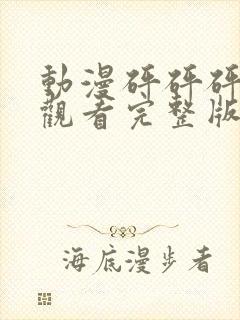 動漫砰砰砰
觀看完整版
海底漫步者